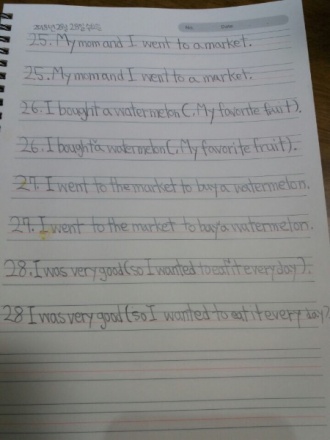 25. My mom and I went to a market.
25. My mom and I went to a market.
26. I bought a watermelon(. My favorite fuit).
26. I bought a watermelon(. My favorite fruit).
27. I went to the market to buy a watermelon.
27. I went to the market to buy a watermelon.
28. I was very good (so I wanted to eat it every day).
28 I was very good (so I wanted to eat it every day)